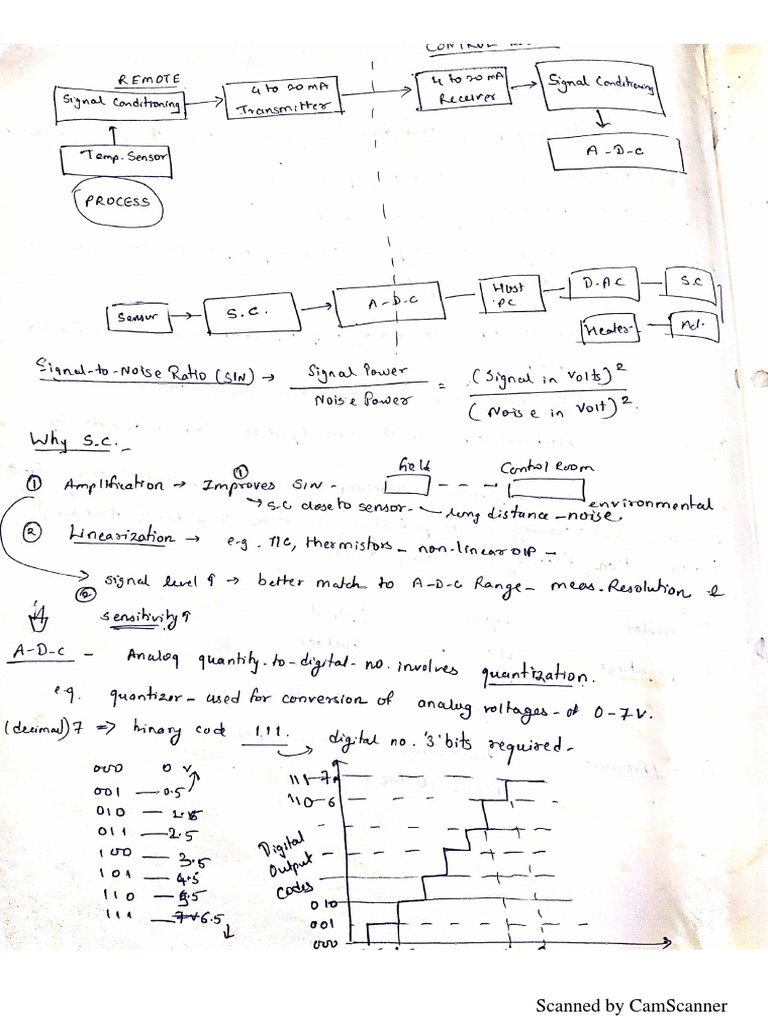 CONTROL
REMOTE
Signal Conditioning
4 to 20 mA
Transmitter
4 to 20 mA
Receiver
Signal Conditioning
Temp. Sensor
A-D-C
PROCESS
Sensor
S.C.
A-D-C
Host
PC
D.A.C
S.C
Heater
Act.
Signal-to-Noise Ratio (S/N) → Signal Power / Noise Power = (Signal in volts)² / (Noise in volt)².
Why S.C.
① Amplification → Improves S/N - field --- Control Room
① → S.C close to sensor - long distance - noise. environmental
② Linearization → e.g. T/C, thermistors - non-linear O/P -
② signal level ↑ → better match to A-D-C Range - meas. Resolution &
sensitivity ↑
A-D-C - Analog quantity-to-digital-no. involves quantization.
e.g. quantizer - used for conversion of analog voltages - of 0-7V.
(decimal) 7 ⇒ binary code 111. → digital no. '3' bits required -
000 0 V
001 — 0.5
010 — 1.5
011 — 2.5
100 — 3.5
101 — 4.5
110 — 5.5
111 — 7V 6.5
111-7
110-6
Digital
Output
codes
010
001
000
Scanned by CamScanner